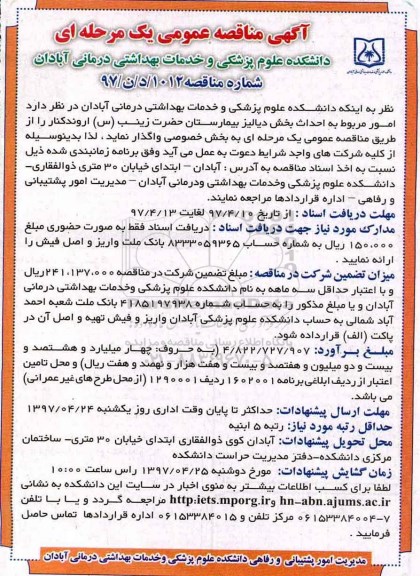 آگهی مناقصه عمومی یک مرحله ای
دانشکده علوم پزشکی و خدمات بهداشتی درمانی آبادان
شماره مناقصه ۱۰۱۲/د/ن/۹۷
نظر به اینکه دانشکده علوم پزشکی و خدمات بهداشتی درمانی آبادان در نظر دارد
امور مربوط به احداث بخش دیالیز بیمارستان حضرت زینب (س) اروندکنار را از
طریق مناقصه عمومی یک مرحله ای به بخش خصوصی واگذار نماید ، لذا بدینوسیله
از کلیه شرکت های واجد شرایط دعوت به عمل می آید وفق برنامه زمانبندی ذیل
نسبت به اخذ اسناد مناقصه به آدرس : آبادان – ابتدای خیابان ۳۰ متری ذوالفقاری-
دانشکده علوم پزشکی وخدمات بهداشتی ودرمانی آبادان – مدیریت امور پشتیبانی
و رفاهی – اداره قراردادها مراجعه نمایند.
مهلت دریافت اسناد : از تاریخ ۹۷/۴/۱۰ لغایت ۹۷/۴/۱۳
مدارک مورد نیاز جهت دریافت اسناد : دریافت اسناد فقط به صورت حضوری مبلغ
۱۵۰،۰۰۰ ریال به شماره حساب ۸۳۳۳۰۵۹۳۶۵ بانک ملت واریز و اصل فیش را
ارائه نمایید .
میزان تضمین شرکت در مناقصه : مبلغ تضمین شرکت در مناقصه ۲۴۱،۱۳۷،۰۰۰ریال
و با اعتبار حداقل سه ماهه به نام دانشکده علوم پزشکی وخدمات بهداشتی درمانی
آبادان و یا مبلغ مذکور را به حساب شماره ۴۱۸۵۱۹۷۹۳۸ بانک ملت شعبه احمد
آباد شمالی به حساب دانشکده علوم پزشکی آبادان واریز و فیش تهیه و اصل آن در
پاکت (الف) قرارداده شود.
مبلغ برآورد: ۴/۸۲۲/۷۲۷/۹۰۷ (به حروف: چهار میلیارد و هشتصد و
بیست و دو میلیون و هفتصد و بیست و هفت هزار و نهصد و هفت ریال) و محل تامین
اعتبار از ردیف ابلاغی برنامه ۱۶۰۲۰۰۱ ردیف ۱۲۹۰۰۰۱ (از محل طرح های غیر عمرانی)
می باشد.
مهلت ارسال پیشنهادات: حداکثر تا پایان وقت اداری روز یکشنبه ۱۳۹۷/۰۴/۲۴
حداقل رتبه مورد نیاز: رتبه ۵ ابنیه
محل تحویل پیشنهادات: آبادان کوی ذوالفقاری ابتدای خیابان ۳۰ متری- ساختمان
مرکزی دانشکده-دفتر مدیریت حراست دانشکده
زمان گشایش پیشنهادات: مورخ دوشنبه ۱۳۹۷/۰۴/۲۵ راس ساعت ۱۰:۰۰
لطفا برای کسب اطلاعات بیشتر به منوی اخبار در سایت این دانشکده به نشانی
hn-abn.ajums.ac.ir و http:iets.mporg.ir مراجعه گردد و یا با تلفن
۰۶۱۵۳۳۸۴۰۰۴-۷ مرکز تلفن و ۰۶۱۵۳۳۸۴۰۱۵ اداره قراردادها تماس حاصل
فرمایید .
مدیریت امور پشتیبانی و رفاهی دانشکده علوم پزشکی وخدمات بهداشتی درمانی آبادان